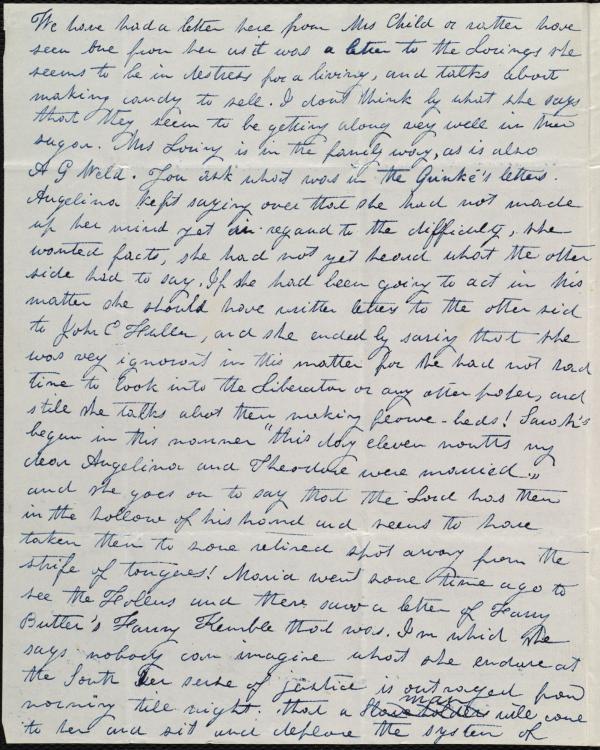 We have had a letter here from Mrs Child or rather have
seen one from her as it was a letter to the Lorings she
seems to be in destress for a living, and talks about
making candy to sell. I dont think by what she says
that they seem to be getting along very well in their
sugar. Mrs Loring is in the family way, as is also
A G Weld. You ask what was in the Grimké's letters.
Angelina kept saying over that she had not made
up her mind yet in regard to the difficulty, she
wanted facts, she had not yet heard what the other
side had to say, If she had been going to act in this
matter she should have written letters to the other sid
to John E Fuller, and she ended by saying that she
was very ignorant in this matter for she had not had
time to look into the Liberator or any other paper, and
stile she talks about them making beds! Sarah's
began in this manner "this day eleven months my
dear Angelina and Theodore were married",
and she goes on to say that the Lord has them
in the hollow of his hand and seems to have
taken them to some retired spot away from the
strife of tongues! Maria went some time ago to
see the Follens and there saw a letter of Fanny
Butler's Fanny Kemble that was. In which she
says nobody can imagine what she endures at
the South Her sense of justice is outraged from
morning till night. that a man will come
to her and sit and deplore the system of